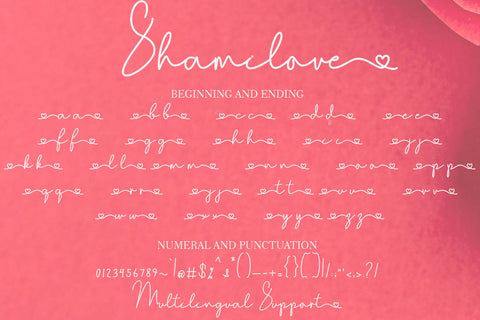 Shamclove
BEGINNING AND ENDING
aa bb cc dd ee
ff gg hh cc jj
kk ll mm nn oo pp
qq rr jj tt uu vv
ww xx yy zz
NUMERAL AND PUNCTUATION
0123456789~`!@#$
Multilingual Support